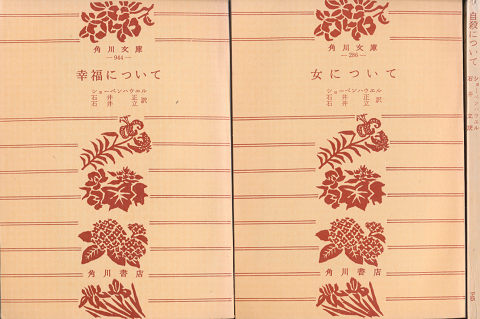 角川文庫
—944—
幸福について
ショーペンハウエル
石井 正 訳
石井 立
角川書店
角川文庫
—286—
女について
ショーペンハウエル
石井 正 訳
石井 立
角川書店
自殺について
ショーペンハウエル
石井 立 訳